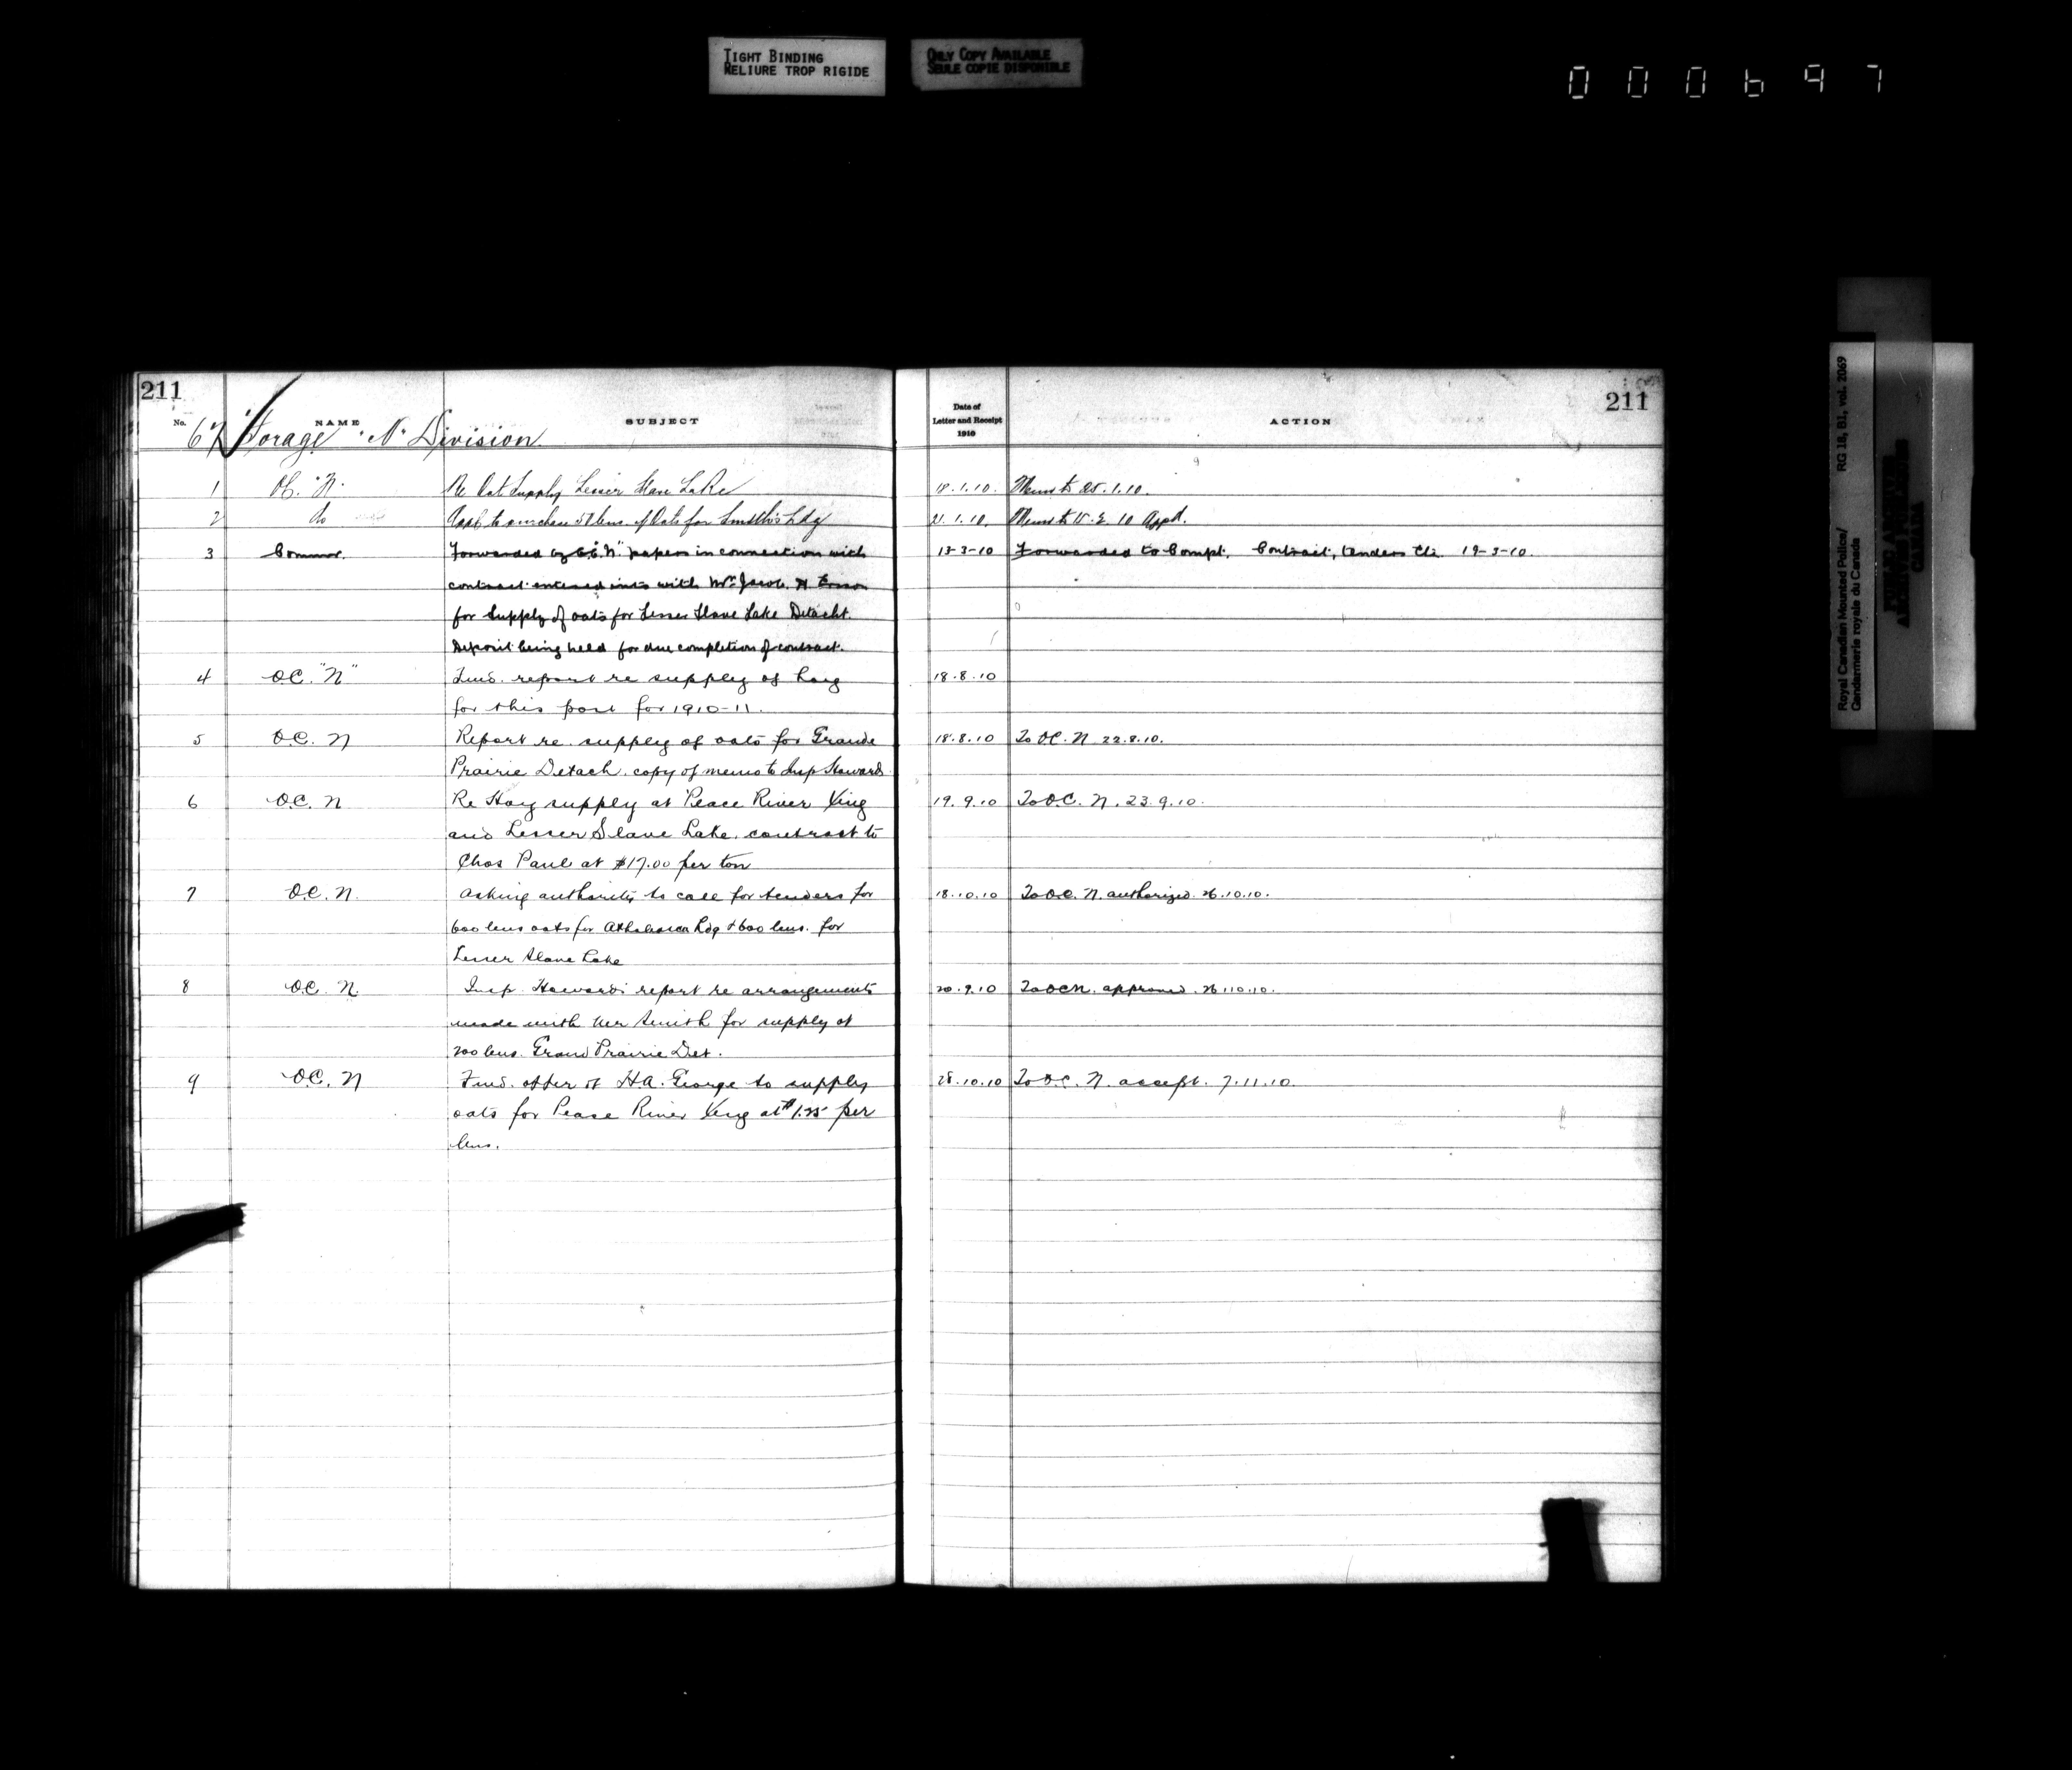 TIGHT BINDING
RELIURE TROP RIGIDE
ONLY COPY AVAILABLE
SEULE COPIE DISPONIBLE
000697
211
211
No. NAME SUBJECT Date of Letter and Receipt 1910 ACTION
67 Forage "N" Division
1 OC. "N" Re Oat Supply Lesser Slave Lake 18.1.10. Memo to 25.1.10.
2 do to purchase bus. of Oats for Smith's Ldg 21.1.10. Memo to 15.2.10 Appd.
3 Commr. Forwarded by O.C. "N" papers in connection with 13-3-10 Forwarded to Compt. Contract, tenders Etc. 19-3-10.
contract entered into with Mr. Jacob. H
for supply of oats for Lesser Slave Lake Detacht.
Deposit being held for due completion of contract.
4 O.C. "N" Fwd. report re supply of hay 18.8.10
for this post for 1910-11.
5 O.C. N Report re. supply of oats for Grande 18.8.10 To OC. N 22.8.10.
Prairie Detach. copy of memo to Insp Howard
6 O.C. N Re Hay supply at Peace River Xing 19.9.10 To O.C. N. 23.9.10.
and Lesser Slave Lake. contract to
Chas Paul at $17.00 per ton
7 O.C. N. Asking authority to call for tenders for 18.10.10 To O.C. N. authorized. 26.10.10.
600 bus oats for Athabasca Ldg & 600 bus. for
Lesser Slave Lake
8 O.C. N. Insp Howard's report re arrangements 20.9.10 To OCN. approved. 26.10.10.
made with Mr Smith for supply of
200 bus. Grand Prairie Det.
9 O.C. N Fwd. offer of H.A. George to supply 28.10.10 To O.C. N. accept. 7.11.10.
oats for Peace River Xing at $1.25 per
bus.
Royal Canadian Mounted Police/ RG 18, B1, vol. 2069
Gendarmerie royale du Canada
PUBLIC ARCHIVES
ARCHIVES PUBLIQUES
CANADA